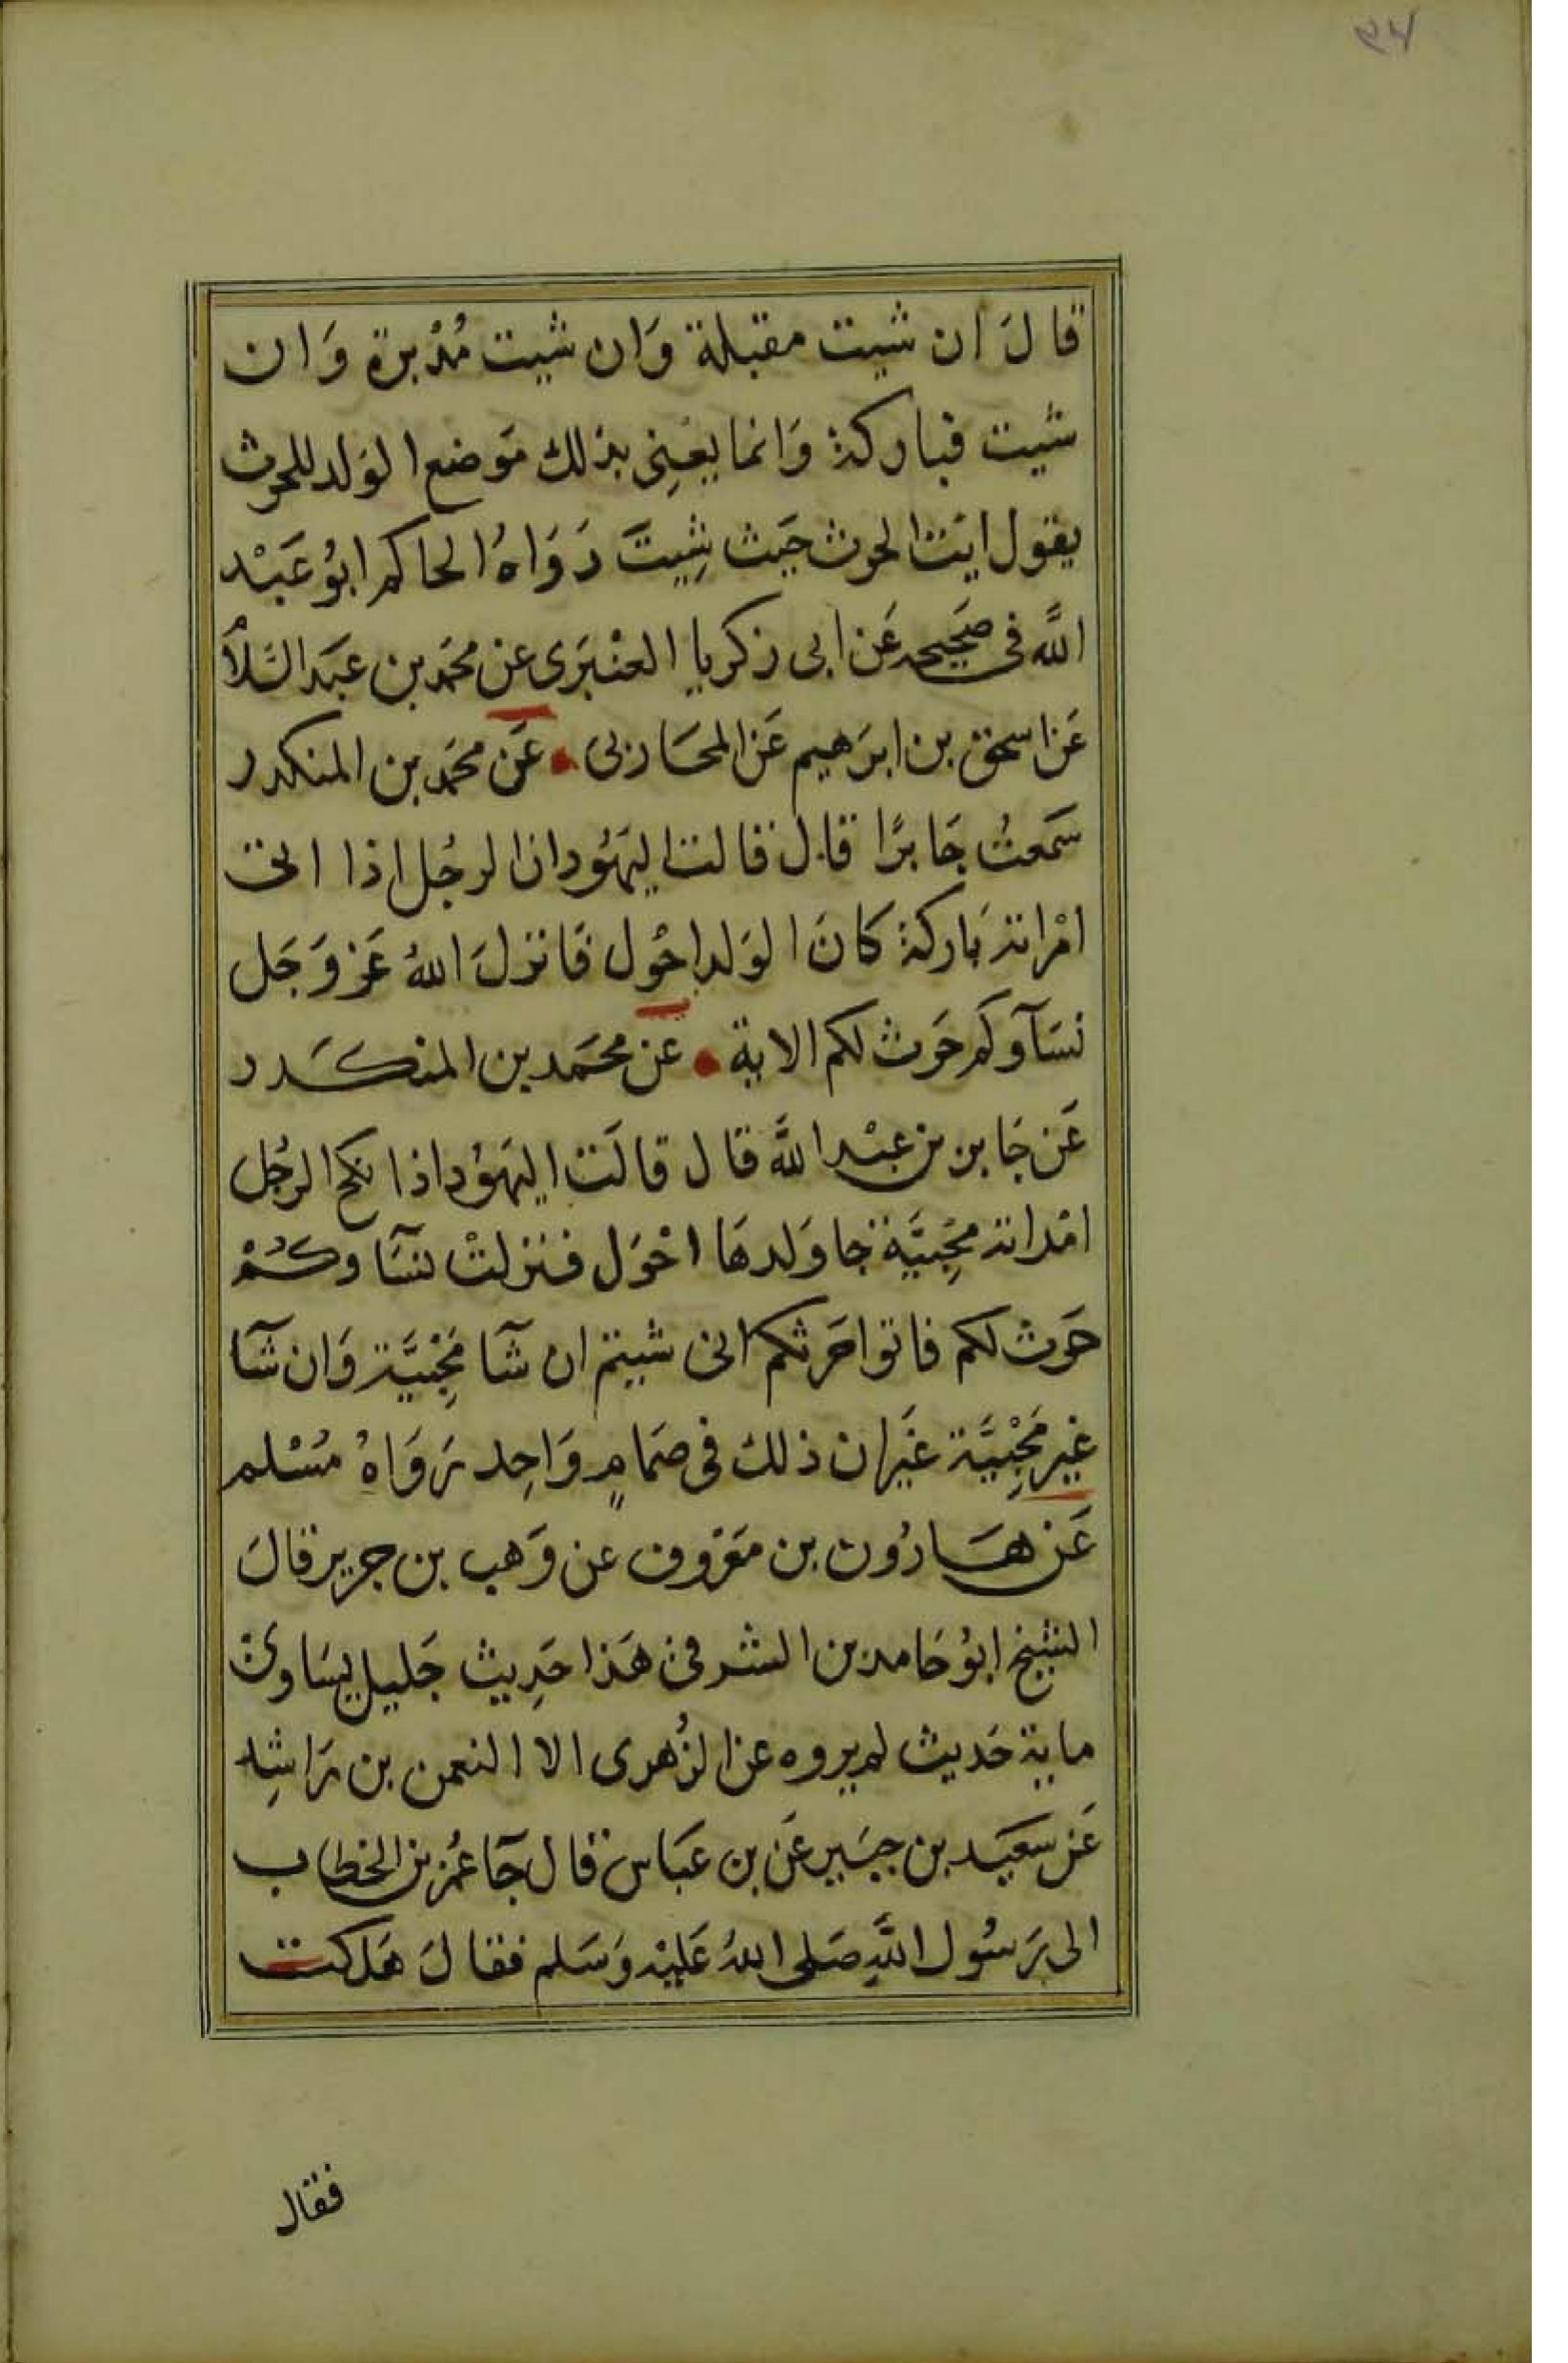 قالَ ان شيت مقبلة وَان شيت مُدْبرة وَان
شيت فباركة وَانما يعْنِى بذلك مَوضع الوَلد للحرث
يقول ايت الحرث حَيث شِيتَ رَوَاهُ الحاكم ابوُ عَبْد
اللَّه فى صَحِيحه عَن ابى زكريا العنْبَرَى عن محمَد بن عبَد السَّلاُم
عَن اسحق بن ابرَهيم عَن المحَاربى • عَن محمَد بن المنكدر
سَمعتُ جَابرًا قال قالت اليهَوُد ان الرجُل اذا اتى
امْراته بَاركة كانَ الوَلد احْول فَانزلَ اللهُ عَز وَجَل
نسَآوكم حَرث لكم الاية • عن محمَد بن المنكَدر
عَن جَابر بن عبْد اللَّه قال قالَت اليهَوُد اذا نكح الرجُل
امْراته مُجِبيَّة جا وَلدهَا احْوَل فنزلتْ نسَآوكُمْ
حَرث لكم فاتوا حَرثكم انى شيتم ان شآ مُجِبْيَّة وَان شآ
غير مُجِبْيَّة غَير ان ذلك فى صمَامٍ وَاحِد رَوَاهُ مُسْلم
عَن هَارُون بن معَرْوف عن وَهب بن جرير قالَ
الشيخ ابوُ حَامد بن الشرقى هَذا حَدِيث جَليل يسَاوى
ماية حَديث لم يروه عن الزُهرى الا النعمن بن رَاشِد
عَن سَعيَد بن جبَير عَن بن عبَاس قال جَآ عُمَر بن الخطاب
الى رَسُول اللَّهِ صَلى اللهُ عَليْه وَسَلم فقالَ هَلكت
فقال